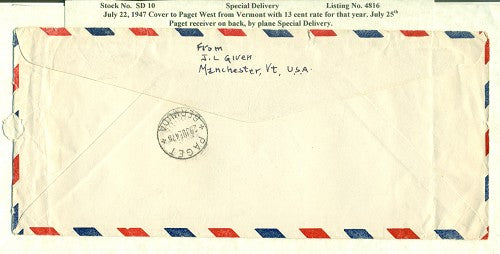 Stock No. SD 10 Special Delivery Listing No. 4816
July 22, 1947 Cover to Paget West from Vermont with 13 cent rate for that year. July 25th
Paget receiver on back, by plane Special Delivery.
From
J. L Given
Manchester, Vt, U.S.A.
PAGET
BERMUDA